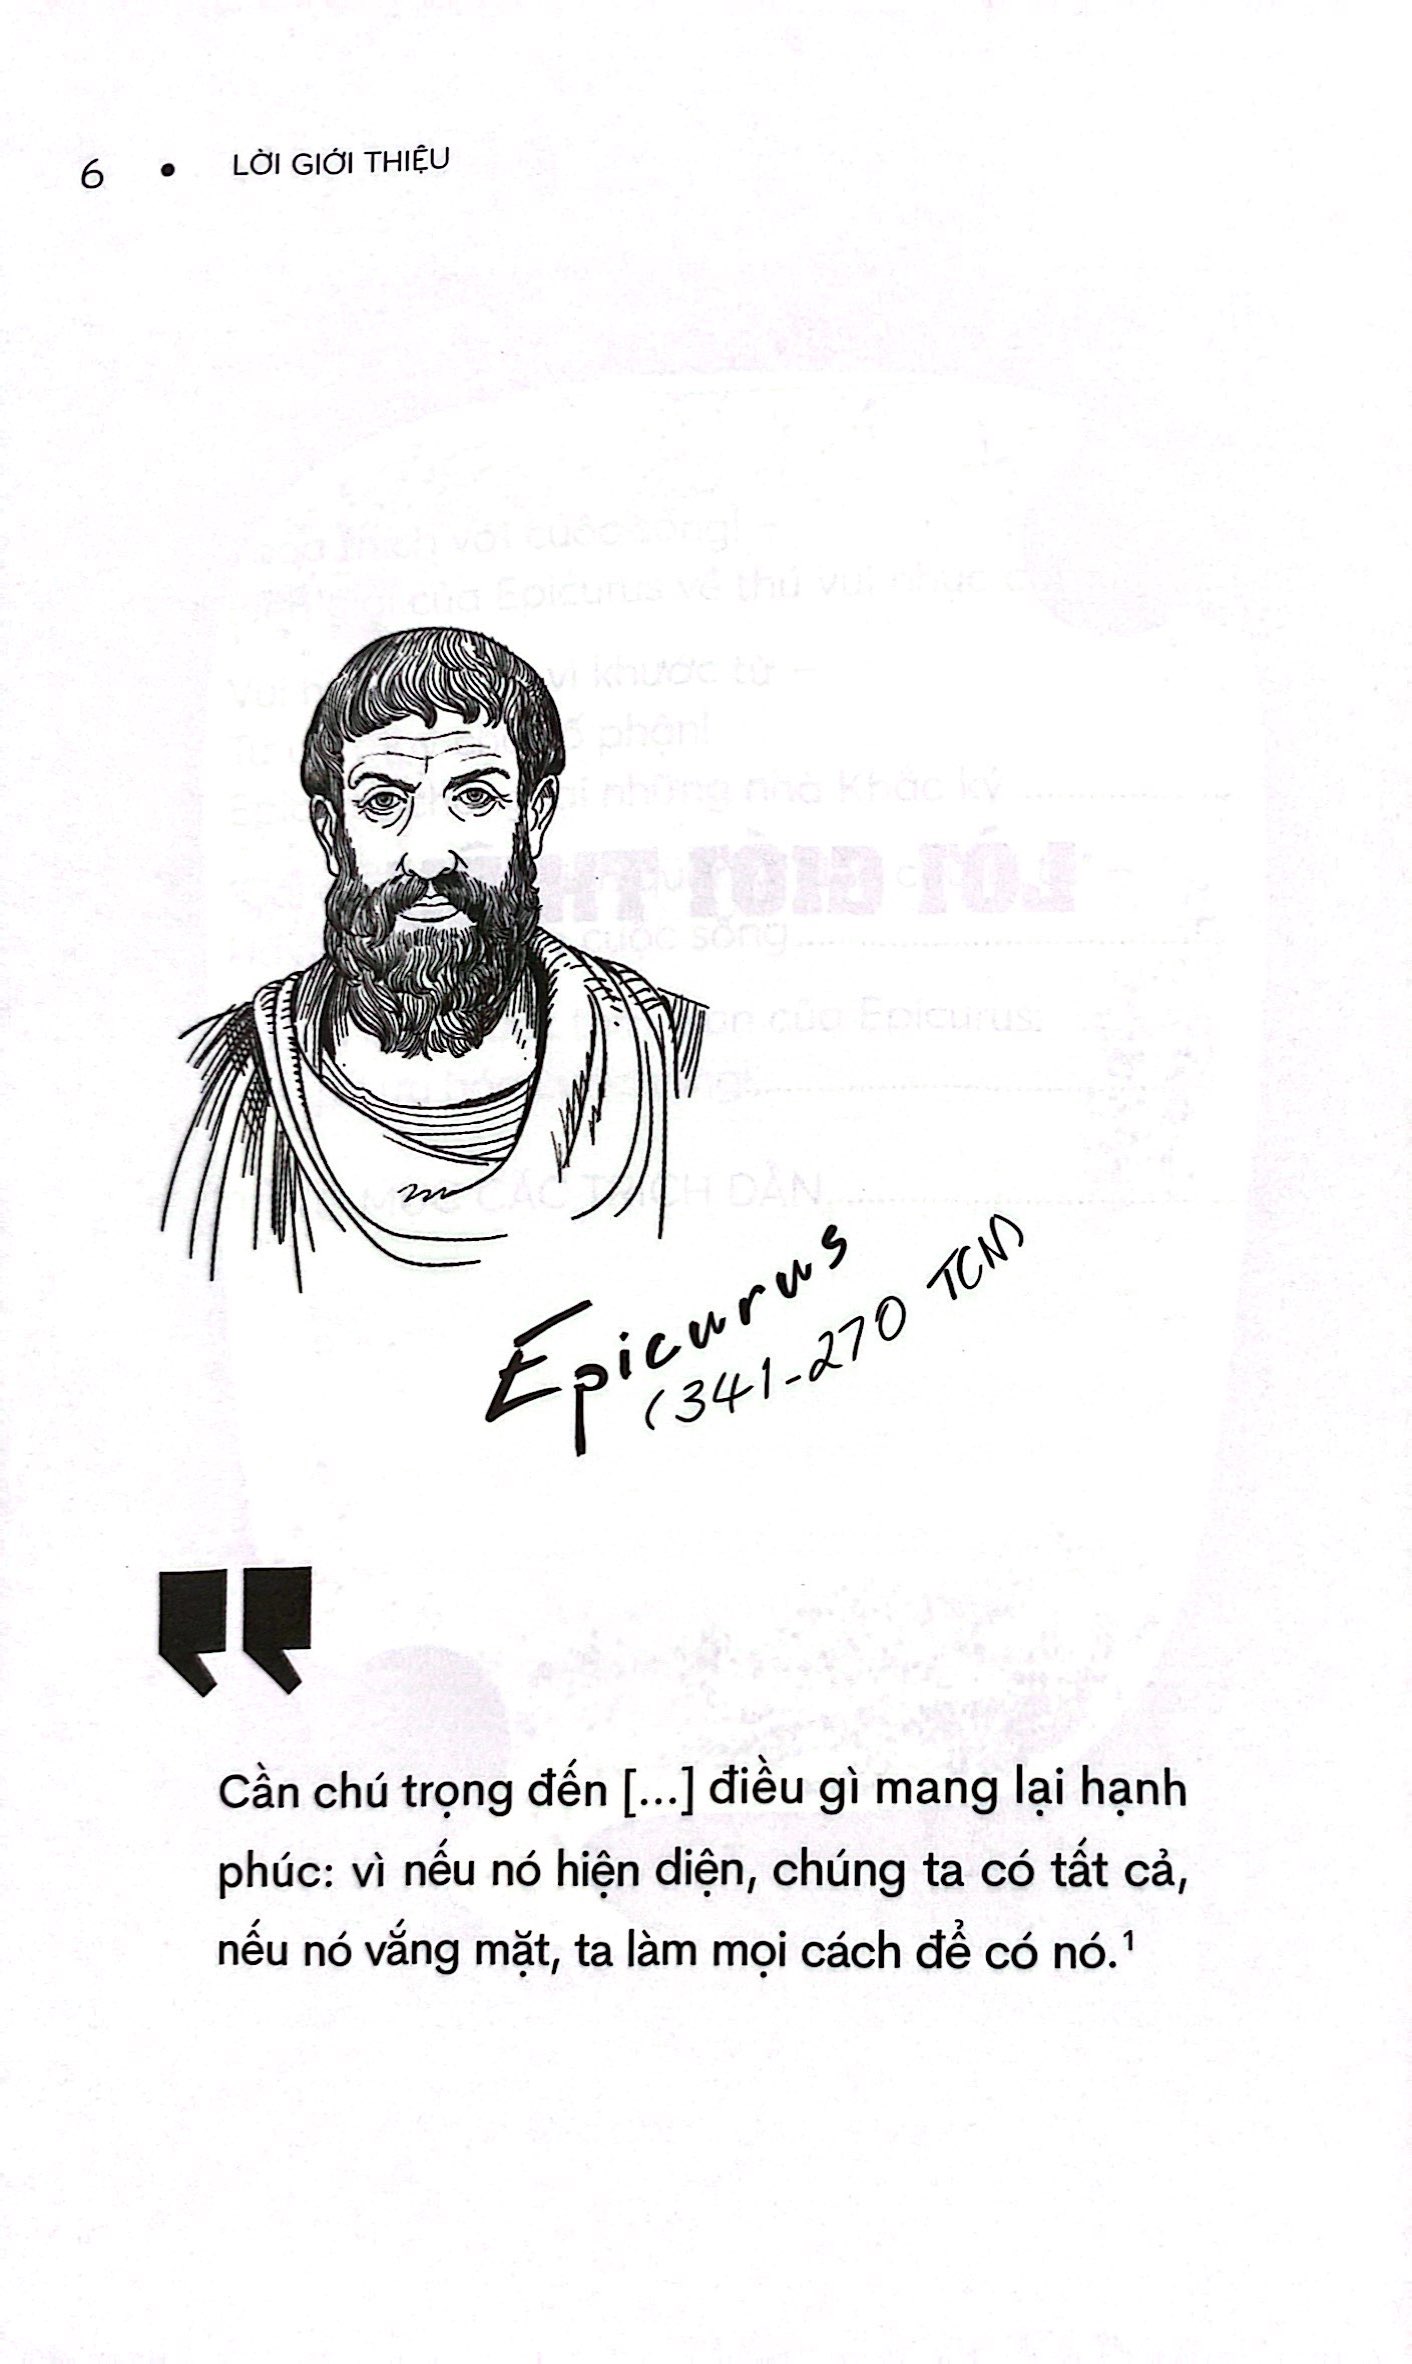 6 • LỜI GIỚI THIỆU
Epicurus
(341-270 TCN)
Cần chú trọng đến [...] điều gì mang lại hạnh
phúc: vì nếu nó hiện diện, chúng ta có tất cả,
nếu nó vắng mặt, ta làm mọi cách để có nó.¹